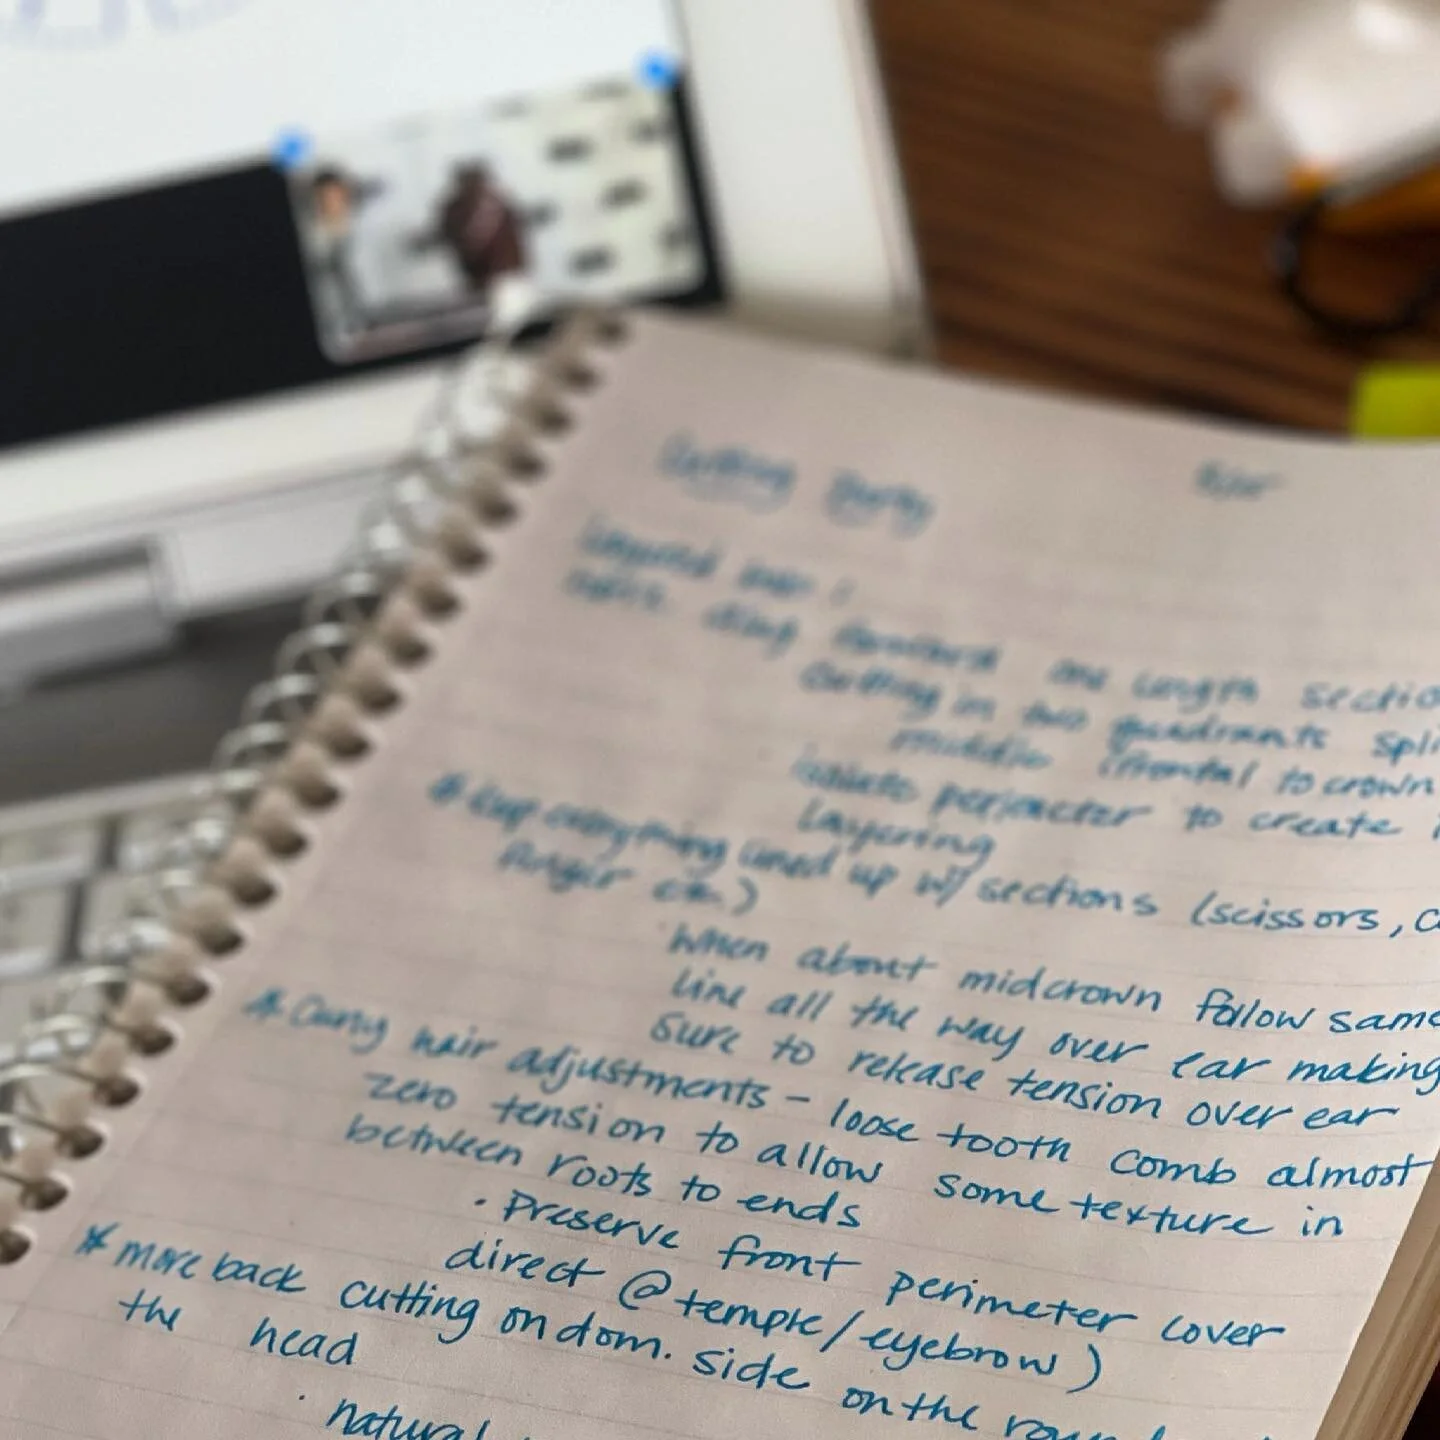 Cutting Party
Layered
diag forward one length sectio
cutting in two quadrants spli
middle (frontal to crown
isolate perimeter to create i
layering
* Keep everything lined up w/ sections (scissors, c
finger etc.)
when about midcrown follow same
line all the way over ear making
sure to release tension over ear
* Curly hair adjustments - loose tooth comb almost
zero tension to allow some texture in
between roots to ends
· Preserve front perimeter (over
direct @ temple/eyebrow)
* more back cutting on dom. side on the roun
the head
· natural